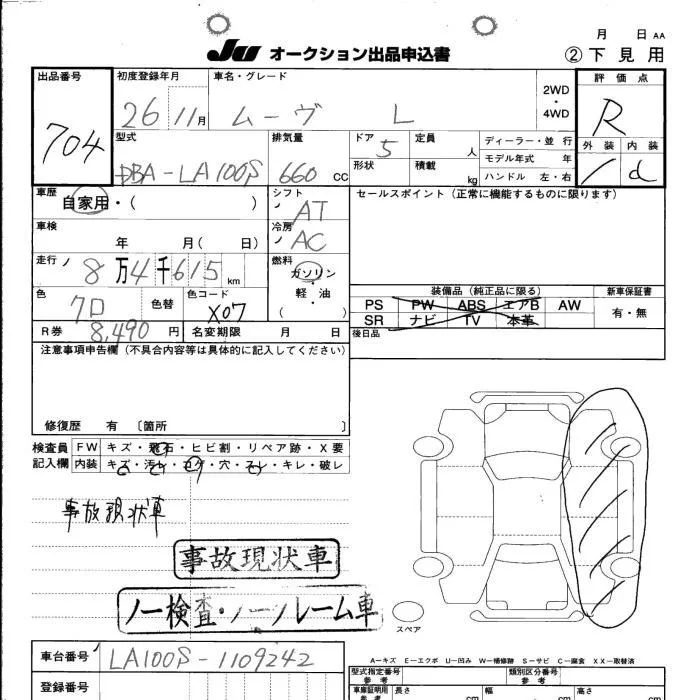 月 日 AA
JU オークション出品申込書 ②下見用
出品番号 初度登録年月 車名・グレード 2WD ・ 4WD 評価点
704 26 11月 ムーヴ L R
型式 排気量 ドア 定員 ディーラー・並行 外装 内装
DBA-LA100S 660 CC 5 人 モデル年式 年 / d
形状 積載 kg ハンドル 左・右
車歴 自家用・( ) シフト AT セールスポイント(正常に機能するものに限ります)
車検 年 月( 日) 冷房 AC
走行 8万4千615km 燃料 ガソリン・軽油・( )
装備品(純正品に限る) 新車保証書
色 色替 色コード X07 PS PW ABS エアB AW 有・無
SR ナビ TV 本革
R券 8,490円 名変期限 月 日 後日品
注意事項申告欄(不具合内容等は具体的に記入してください)
修復歴 有 〔箇所 〕
検査員 FW キズ・飛石・ヒビ割・リペア跡・X要
記入欄 内装 キズ・汚レ・コゲ・穴・スレ・キレ・破レ
事故現状車
事故現状車
ノー検査・ノークレーム車
スペア
車台番号 LA100S-1109242
A-キズ E-エクボ U-凹み W-補修跡 S-サビ C-腐食 XX-取替済
登録番号 型式指定番号 参考 類別区分番号 参考
車庫証明用 参考 長さ cm 幅 cm 高さ cm